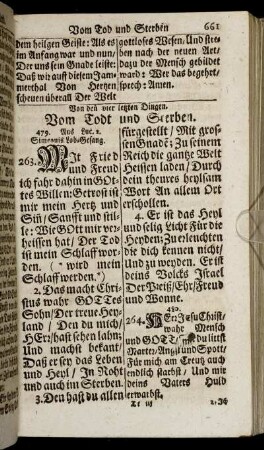 Vom Tod und Sterben 661
dem heilgen Geiste: Als es
im Anfang war und nun/
Der uns sein Gnade leiste:
Daß wir auff diesem Jam-
merthal Von Hertzen
scheuen überall Der Welt
gottloses Wesen/ Und stre-
ben nach der neuen Art/
dazu der Mensch gebildet
ward: Wer das begehrt/
sprech: Amen.
Von den vier letzten Dingen.
Vom Todt und Sterben.
479. Aus Luc. 2.
Simeonis Lob-Gesang.
263. MIt Fried
und Freud
ich fahr dahin in GOt-
tes Willen: Getrost ist
mir mein Hertz und
Sin/ Sanfft und stil-
le: Wie GOtt mir ver-
heissen hat/ Der Tod
ist mein Schlaff wor-
den. (* wird mein
Schlaff werden.*)
2. Das macht Chri-
stus wahr GOTTes
Sohn/ Der treue Hey-
land/ Den du mich/
HErr/ hast sehen lahn/
Und machst bekant/
Daß er sey das Leben
und Heyl/ In Noht
und auch im Sterben.
3. Den hast du allen
fürgestellt/ Mit gros-
sen Gnadē: Zu seinem
Reich die gantze Welt
Heissen laden/ Durch
dein theures heylsam
Wort An allem Ort
erschollen.
4. Er ist das Heyl
und selig Licht Für die
Heyden: Zu erleuchten
die dich kennen nicht/
Und zu weyden. Er ist
deins Volcks Israel
Der Preiß/ Ehr/ Freud
und Wonne.
480.
264. HErr JEsu Christ/
wahr Mensch
und GOTT/ du littst
Marter/ Angst und Spott/
Für mich am Creutz auch
endlich starbst/ Und mir
deins Vaters Huld
erwarbst.
2. Ich